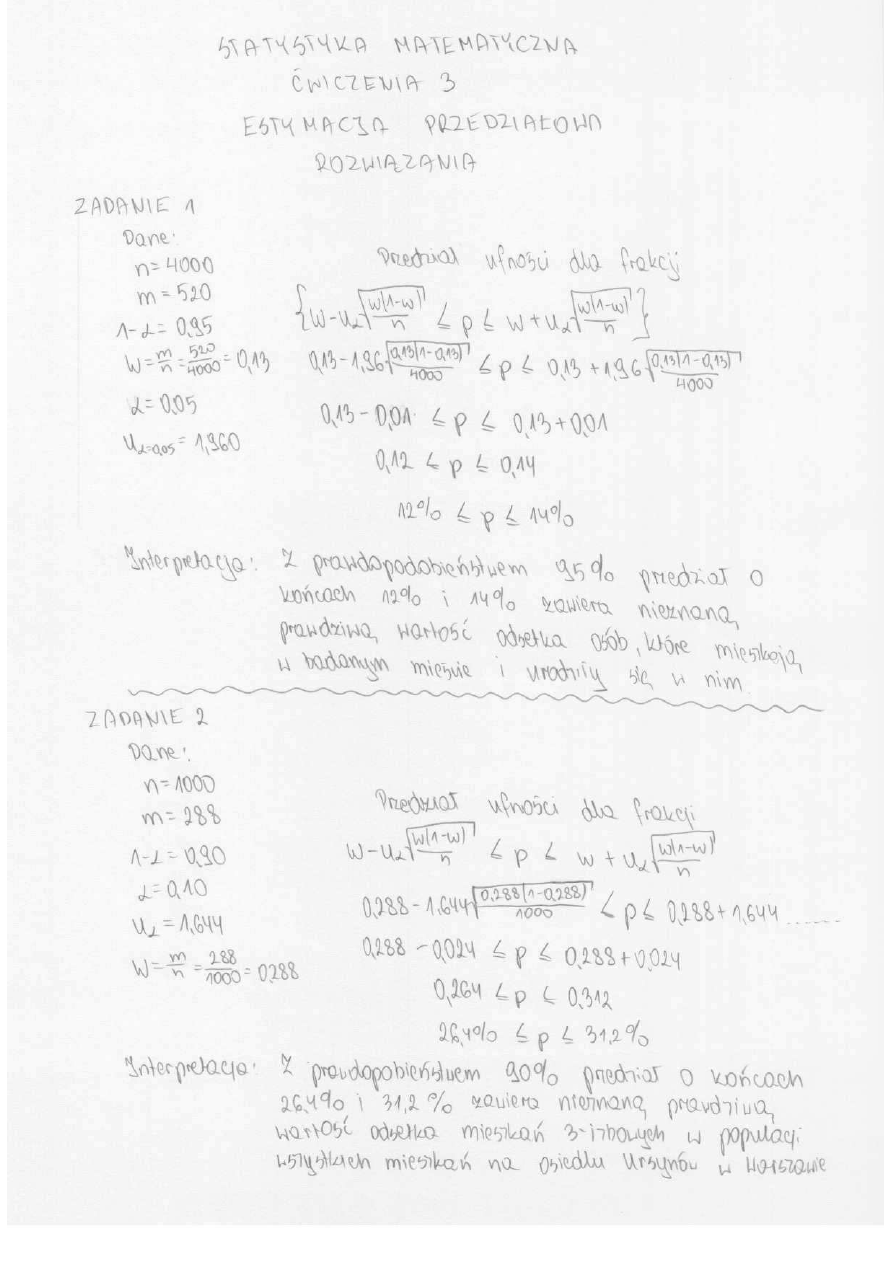 STATYSTYKA MATEMATYCZNA
ĆWICZENIA 3
ESTYMACJA PRZEDZIAŁOWA
ROZWIĄZANIA
ZADANIE 1
Dane:
n=4000
m=520
1-α=0,95
W=m/n=520/4000=0,13
α=0,05
uα=0,05=1,960
Przedział ufności dla frakcji
{w-uα√(w(1-w)/n) ≤ p ≤ w+uα√(w(1-w)/n)}
0,13-1,96√(0,13(1-0,13)/4000) ≤ p ≤ 0,13+1,96√(0,13(1-0,13)/4000)
0,13-0,01 ≤ p ≤ 0,13+0,01
0,12 ≤ p ≤ 0,14
12% ≤ p ≤ 14%
Interpretacja: Z prawdopodobieństwem 95% przedział o
końcach 12% i 14% zawiera nieznaną,
prawdziwą wartość odsetka osób, które mieszkają
w badanym mieście i urodziły się w nim
ZADANIE 2
Dane:
n=1000
m=288
1-α=0,90
α=0,10
uα=1,644
W=m/n=288/1000=0,288
Przedział ufności dla frakcji
w-uα√(w(1-w)/n) ≤ p ≤ w+uα√(w(1-w)/n)
0,288-1,644√(0,288(1-0,288)/1000) ≤ p ≤ 0,288+1,644......
0,288-0,024 ≤ p ≤ 0,288+0,024
0,264 ≤ p ≤ 0,312
26,4% ≤ p ≤ 31,2%
Interpretacja: Z prawdopobieństwem 90% przedział o końcach
26,4% i 31,2% zawiera nieznaną, prawdziwą,
wartość odsetka mieszkań 3-izbowych w populacji
wszystkich mieszkań na osiedlu Ursynów w Warszawie